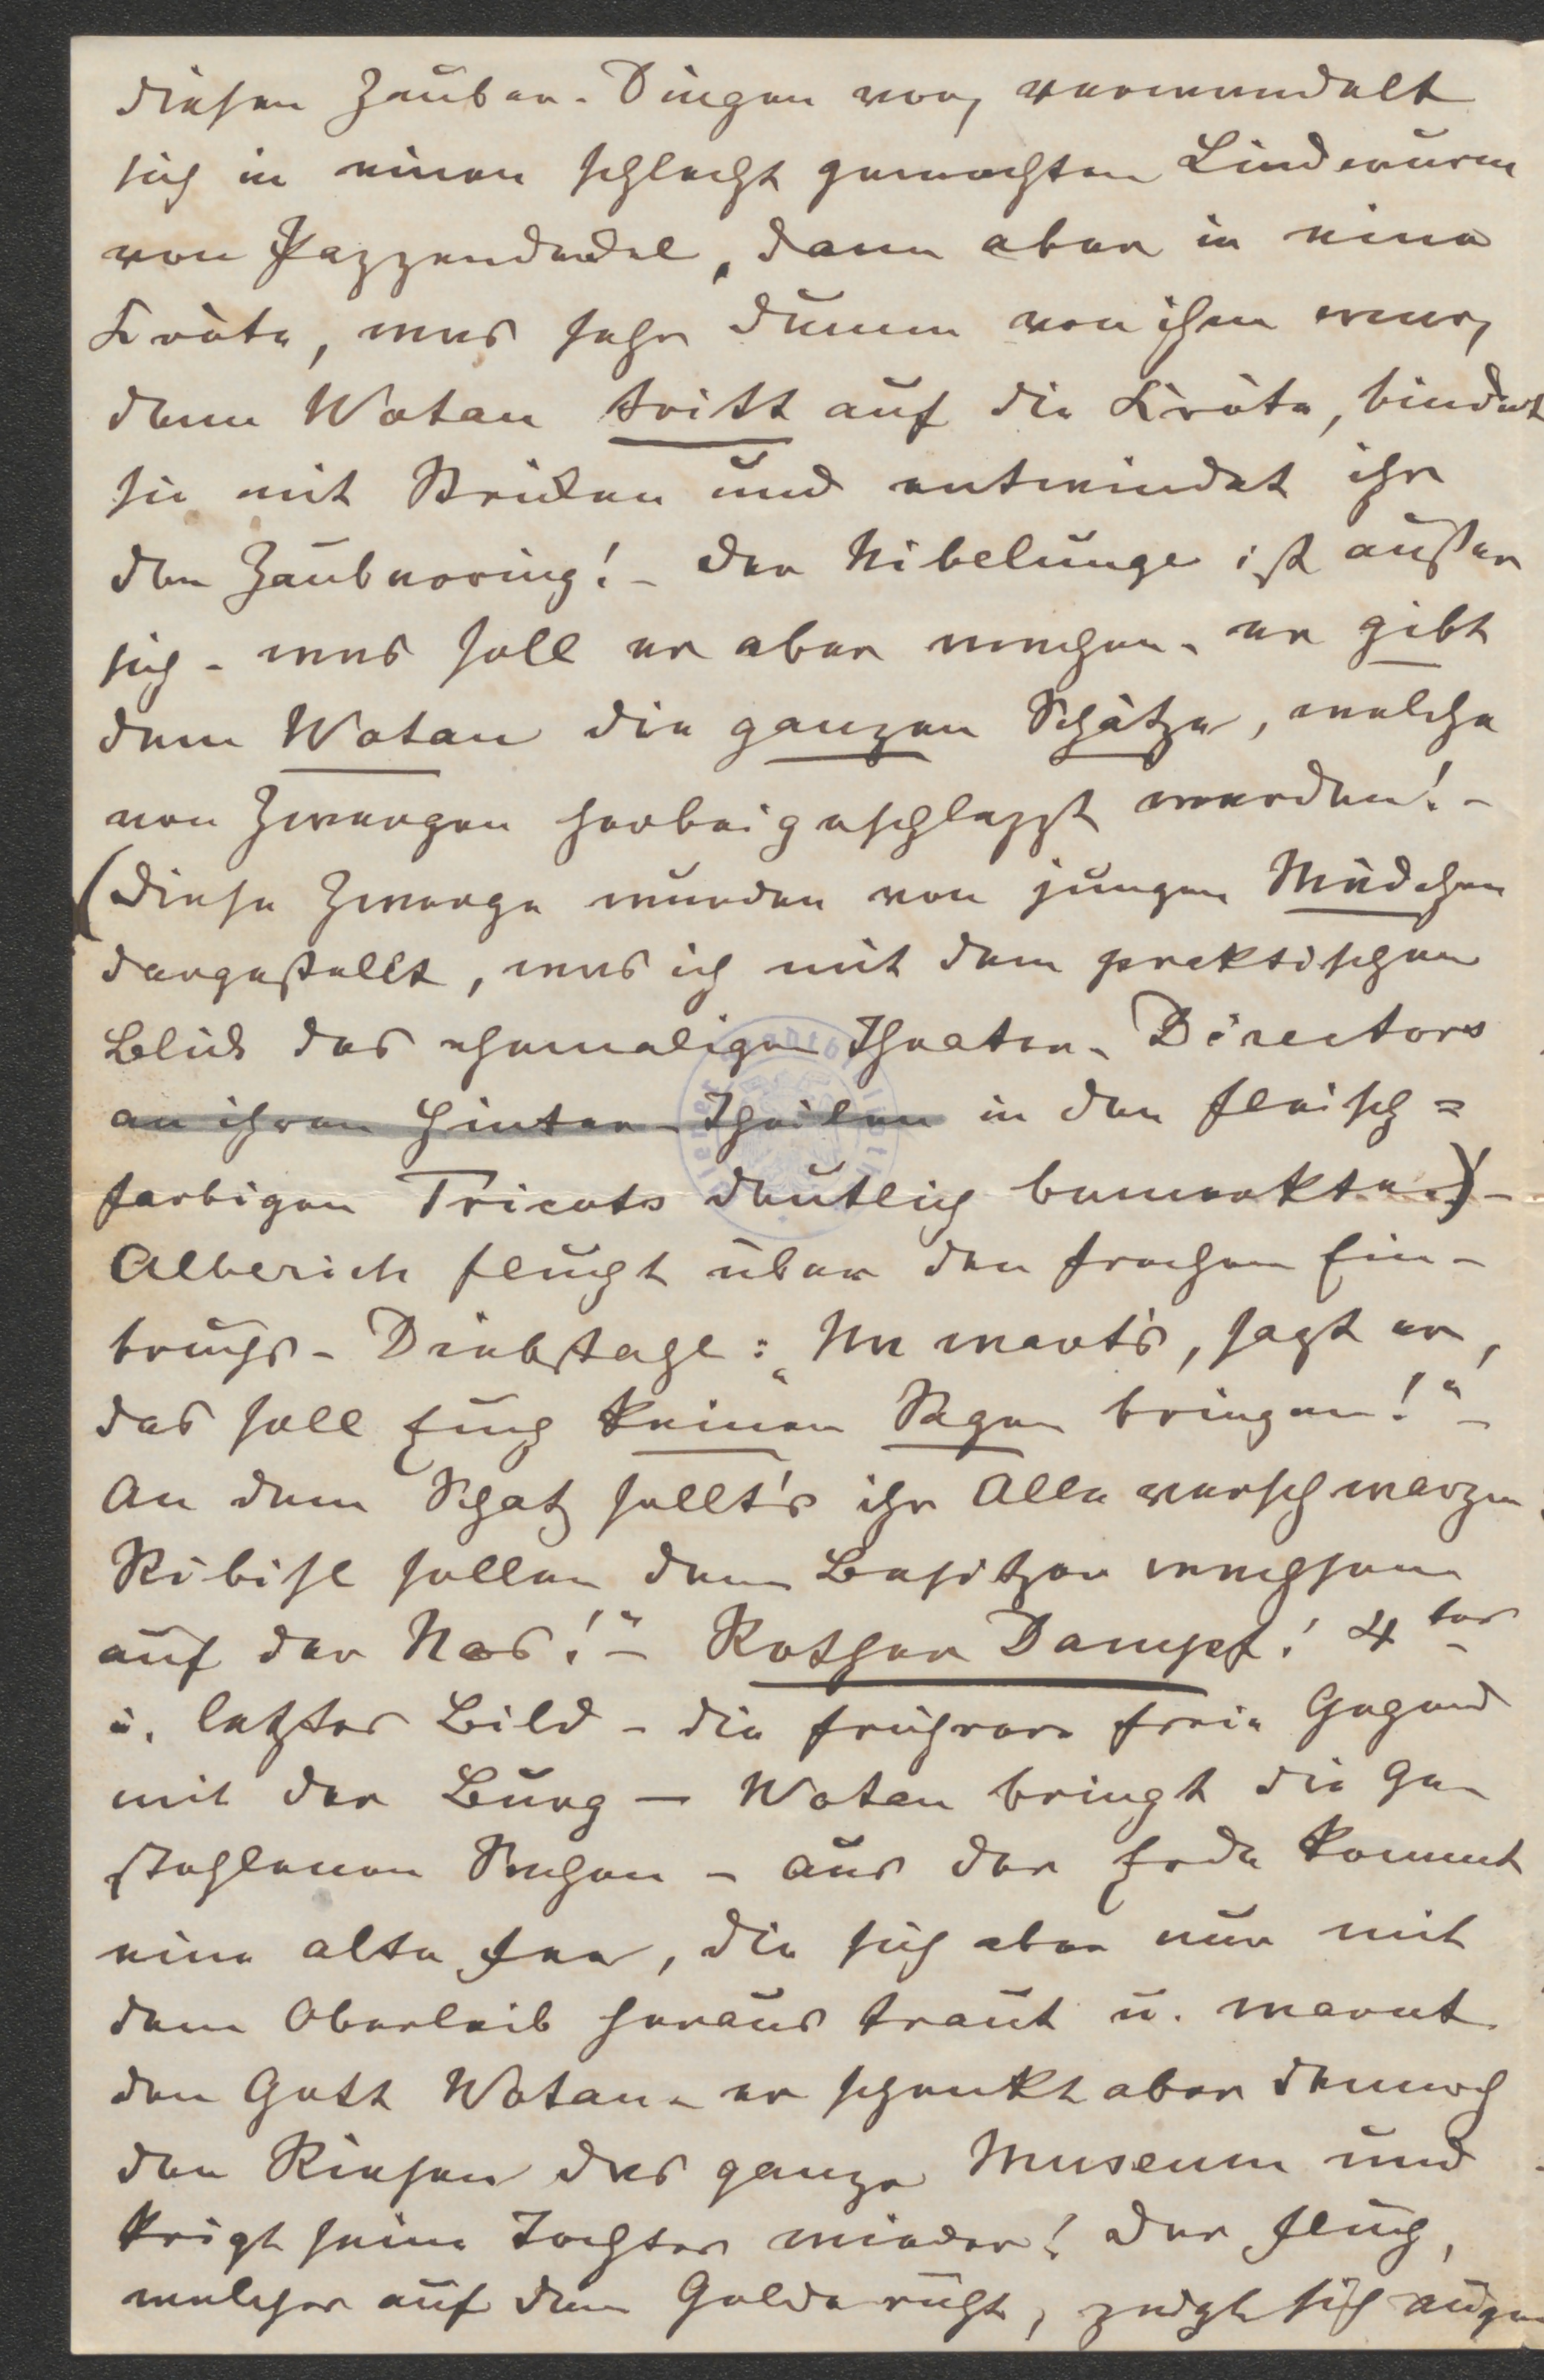 diesen Zauber-Dingen vor, verwandelt
sich in einen schlecht gemachten Lindwurm
von Pappendeckel, dann aber in eine
Kröte, was sehr dumm von ihm war,
denn Wotan tritt auf die Kröte, bindet
sie mit Stricken und entwindet ihr
den Zauberring! – Der Nibelunge ist außer
sich – was soll er aber machen – er gibt
dem Wotan die ganzen Schätze, welche
von Zwergen herbeigeschleppt werden! –
(Diese Zwerge wurden von jungen Mädchen
dargestellt, was ich mit dem praktischen
Blick des ehemaligen Theater-Directors
an ihren Hinter-Theilen in den fleisch=
farbigen Tricots deutlich bemerkte.) –
Alberich flucht über den frechen Ein-
bruchs-Diebstahl: „Nu wart's, sagt er,
das soll Euch keinen Segen bringen!" –
An dem Schatz sollt's ihr Alle verschwarzen
Ribisl sollen dem Besitzer wachsen
auf der Nas!" – Rother Dampf! 4tes
u. letztes Bild – die frühere freie Gegend
mit der Burg – Wotan bringt die ge-
stohlenen Sachen – aus der Erde kommt
eine alte Fee, die sich aber nur mit
dem Oberleib heraus traut u. warnt
den Gott Wotan – er schenkt aber dennoch
den Riesen das ganze Museum und
krigt seine Tochter wieder! Der Fluch,
welcher auf dem Golde ruht, zeigt sich augen